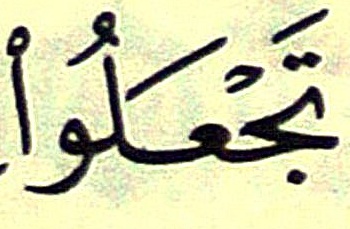 تَجْعَلُواْ